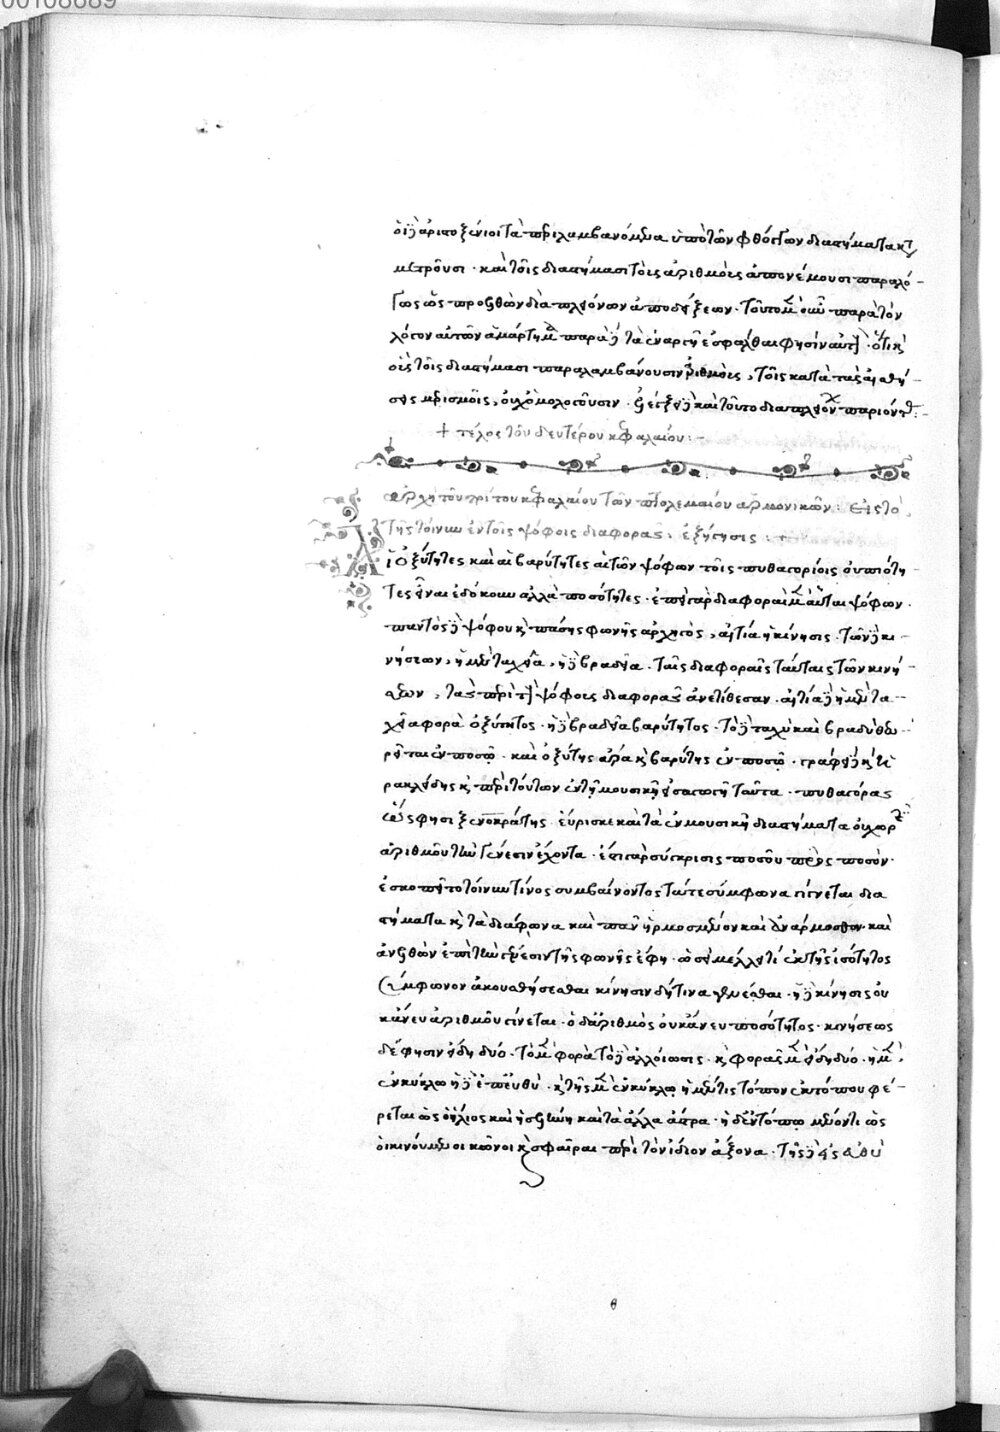 00108689
οἱ δὲ ἀριστοξένιοι τὰ περιλαμβανόμενα ὑπὸ τῶν φθόγγων διαστήματα κατ
μετροῦσι· καὶ τοῖς διαστήμασι τοὺς ἀριθμοὺς ἀπονέμουσι παραλό-
γως ὡς προελθὼν διὰ πλειόνων ἀποδείξεων· τοῦτο μὲν οὖν παρὰ τὸν
λόγον αὐτῶν ἁμάρτημα παρὰ δὲ τὰ ἐναργῆ ἐσφάλθαι φησὶν αὐτοὺς ὅτι καὶ
οὓς τοῖς διαστήμασι παραλαμβάνουσιν ἀριθμοὺς, τοῖς κατὰ τὰς αἰσθή-
σεις μερισμοῖς, οὐχ ὁμολογοῦσιν· δείξει δὲ καὶ τοῦτο διὰ πλειόνων παριόντες:
+ τέλος τοῦ δευτέρου κεφαλαίου:-
ἀρχὴ τοῦ τρίτου κεφαλαίου τῶν πτολεμαίου ἁρμονικῶν: εἰς τὸ,
τῆς τοίνυν ἐν τοῖς ψόφοις διαφορᾶς, ἐξήγησις:+
Αἱ ὀξύτητες καὶ αἱ βαρύτητες αἱ τῶν ψόφων τοῖς πυθαγορίοις οὐ ποιότη
τες εἶναι ἐδόκουν ἀλλὰ ποσότητες· ἐπεὶ γὰρ διαφοραὶ μὲν αὗται ψόφων·
παντὸς δὲ ψόφου καὶ πάσης φωνῆς ἀρχηγὸς, αἰτία ἡ κίνησις· τῶν δὲ κι-
νήσεων, ἡ μὲν ταχεῖα, ἡ δὲ βραδεῖα· ταῖς διαφοραῖς ταύταις τῶν κινή
σεων, τὰς περὶ τοὺς ψόφους διαφορὰς ἀνετίθεσαν· αἰτία δὲ ἡ μὲν τα-
χεῖα φορὰ ὀξύτητος· ἡ δὲ βραδεῖα βαρύτητος· τὸ δὲ ταχὺ καὶ βραδὺ θεω
ρεῖται ἐν ποσῷ· καὶ ὀξύτης ἄρα καὶ βαρύτης ἐν ποσῷ· γράφει δὲ καὶ ἡ
ρακλείδης καὶ περὶ τούτων ἐν τῇ μουσικῇ εἰσαγωγῇ ταῦτα· πυθαγόρας
ὥς φησι ξενοκράτης εὕρισκε καὶ τὰ ἐν μουσικῇ διαστήματα οὐ χωρὶς
ἀριθμοῦ τὴν γένεσιν ἔχοντα· ἔστι γὰρ σύγκρισις ποσοῦ πρὸς ποσόν·
ἐσκοπεῖτο τοίνυν τίνος συμβαίνοντος τά τε σύμφωνα γίγνεται δια
στήματα καὶ τὰ διάφωνα καὶ πᾶν ἡρμοσμένον καὶ ἀνάρμοστον· καὶ
ἀνελθὼν ἐπὶ τὴν γένεσιν τῆς φωνῆς ἔφη· ὡς εἰ μέλλει τι ἐκ τῆς ἰσότητος
σύμφωνον ἀκουσθήσεσθαι κίνησιν δεῖ τινα γενέσθαι· ἡ δὲ κίνησις οὐ
κ ἄνευ ἀριθμοῦ γίνεται· ὁ δ' ἀριθμὸς οὐκ ἄνευ ποσότητος· κινήσεως
δέ φησιν εἴδη δύο· τὸ μὲν φορὰ τὸ δὲ ἀλλοίωσις· καὶ φορᾶς μὲν εἴδη δύο· ἡ μὲν
ἐν κύκλῳ ἡ δὲ ἐπ' εὐθύ· καὶ τῆς μὲν ἐν κύκλῳ ἡ μέν τις τόπον ἐκ τόπου φέ-
ρεται ὡς ὁ ἥλιος καὶ ἡ σελήνη καὶ τὰ ἄλλα ἄστρα· ἡ δ' ἐν τόπῳ μένοντι ὡς
οἱ κινούμενοι κῶνοι καὶ σφαῖραι περὶ τὸν ἴδιον ἄξονα· τῆς δὲ εἰς εὐθὺ
θ